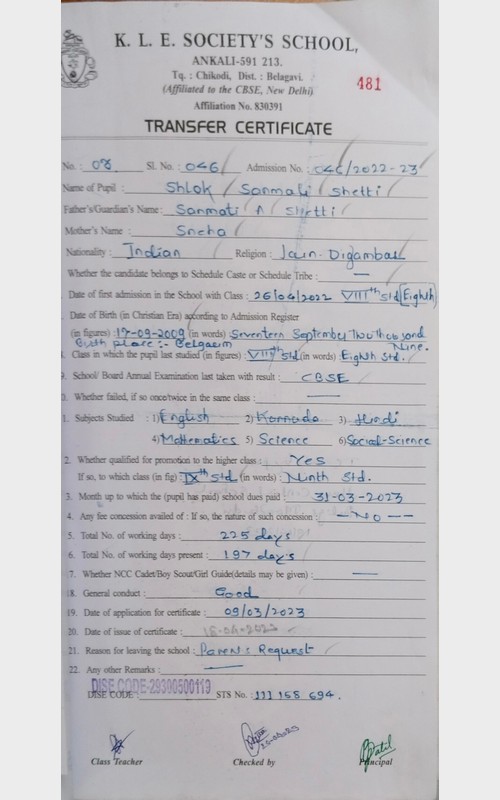 K. L. E. SOCIETY'S SCHOOL,
ANKALI-591 213.
Tq. : Chikodi, Dist. : Belagavi.
(Affiliated to the CBSE, New Delhi)
481
Affiliation No. 830391
TRANSFER CERTIFICATE
No. : 08 Sl. No. : 046 Admission No. : 046/2022-23
Name of Pupil : Shlok Sanmati Shetti
Father's/Guardian's Name : Sanmati A Shetti
Mother's Name : Sneha
Nationality : Indian Religion : Jain-Digambar
Whether the candidate belongs to Schedule Caste or Schedule Tribe : —
Date of first admission in the School with Class : 26/04/2022 VIIIth Std (Eighth)
Date of Birth (in Christian Era) according to Admission Register
(in figures) : 17-09-2009 (in words) Seventeen September Two thousand Nine.
Birth place :- Belgaum
Class in which the pupil last studied (in figures) : VIIIth Std (in words) Eighth Std.
9. School/ Board Annual Examination last taken with result : CBSE
0. Whether failed, if so once/twice in the same class : —
1. Subjects Studied : 1) English 2) Kannada 3) Hindi
4) Mathematics 5) Science 6) Social-Science
2. Whether qualified for promotion to the higher class : Yes
If so, to which class (in fig) : IXth Std (in words) : Ninth Std.
3. Month up to which the (pupil has paid) school dues paid : 31-03-2023
4. Any fee concession availed of : If so, the nature of such concession : — No —
5. Total No. of working days : 225 days
6. Total No. of working days present : 197 days
7. Whether NCC Cadet/Boy Scout/Girl Guide(details may be given) : —
18. General conduct : Good
19. Date of application for certificate : 09/03/2023
20. Date of issue of certificate :
21. Reason for leaving the school : Parents Request
22. Any other Remarks : —
DISE CODE-29300500119
DISE CODE : STS No. : 111 158 694.
Class Teacher Checked by Principal